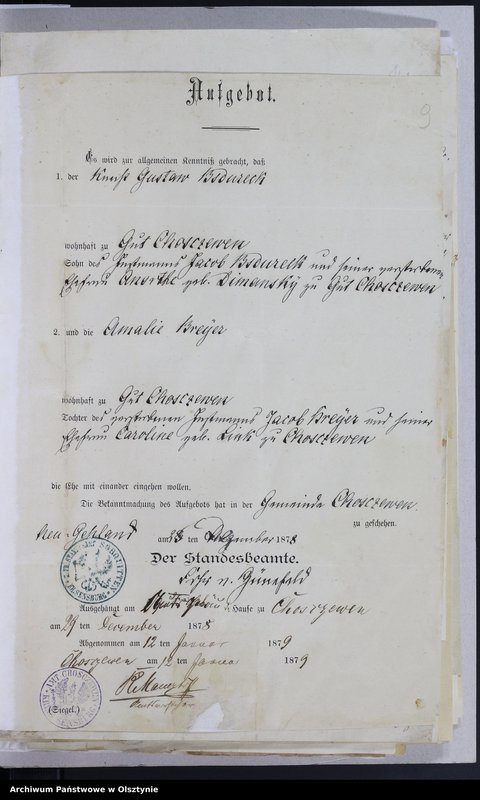 Aufgebot.
9
Es wird zur allgemeinen Kenntniß gebracht, daß
1. der Knecht Gustav Bsdureck
wohnhaft zu Gut Chosczewen
Sohn des Instmanns Jacob Bsdureck und seiner verstorbenen
Ehefrau Anorthe geb. Dimansky zu Gut Chosczewen
2. und die Amalie Breyer
wohnhaft zu Gut Chosczewen
Tochter des verstorbenen Instmanns Jacob Breyer und seiner
Ehefrau Caroline geb. Link zu Chosczewen
die Ehe mit einander eingehen wollen.
Die Bekanntmachung des Aufgebots hat in der Gemeinde Chosczewen
zu geschehen.
Neu-Gehland am 28 ten Dezember 1878
Der Standesbeamte.
v. Günefeld
Ausgehängt am Hause zu Chosczewen
am 29 ten December 1878
Abgenommen am 12 ten Januar 1879
Chosczewen am 12 ten Januar 1879
(Siegel.)
SENSBURG
AMT CHOSCZEWEN
SENSBURG
Archiwum Państwowe w Olsztynie